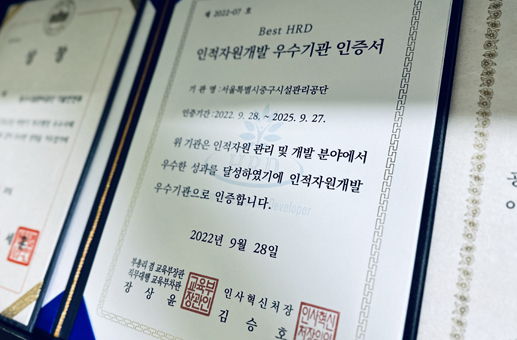 제 2022-07 호
Best HRD
인적자원개발 우수기관 인증서
기 관 명 : 서울특별시중구시설관리공단
인증기간 : 2022. 9. 28. ~ 2025. 9. 27.
위 기관은 인적자원 관리 및 개발 분야에서
우수한 성과를 달성하였기에 인적자원개발
우수기관으로 인증합니다.
2022년 9월 28일
부총리 겸 교육부장관
직무대행 교육부차관
장 상 윤
교육부
장관인
인사혁신처장
김 승 호
인사혁신
처장인